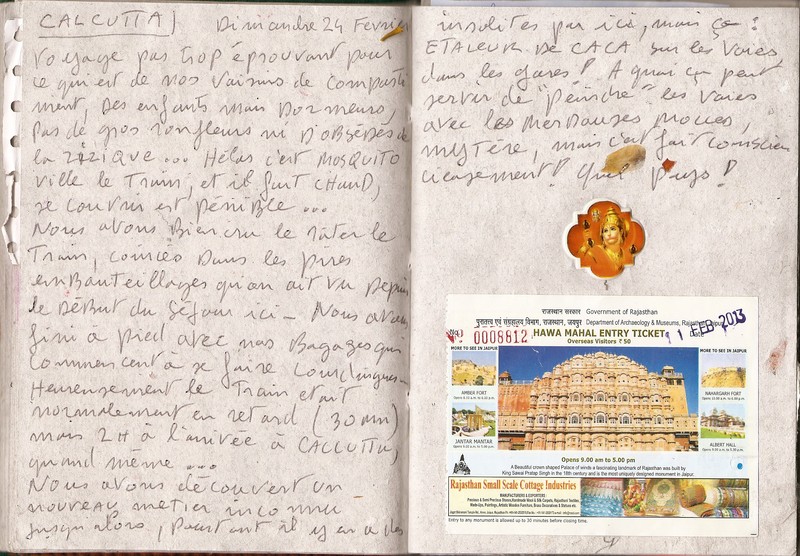 CALCUTTA
Dimandre 24 Février
Voyage pas trop éprouvant pour
ce qui est de nos voisins de comparti
ment, des enfants mais dormeurs,
pas de gros ronfleurs ni d'obsédés de
la zizique... Hélas c'est MOSQUITO
ville le Train, et il fait CHAUD,
se couvrir est pénible...
Nous avons bien cru le râter le
Train, coincés dans les pires
embauteillages qu'on ait vu depuis
le début du séjour ici - Nous avons
fini à pied avec nos bagages qui
commencent à se faire
Heureusement le Train etait
normalement en retard (30 mn)
mais 2H à l'arrivée à CALCUTTA,
quand même...
Nous avons découvert un
nouveau métier inconnu
jusqu'alors, pourtant il y en a des
insolites par ici, mais ça :
ETALEUR DE CACA sur les voies
dans les gares ! A quoi ça peut
servir de "peindre" les voies
avec les merdouses molles,
mystère, mais c'est fait conscien
cieusement ! Quel pays !
राजस्थान सरकार Government of Rajasthan
पुरातत्व एवं संग्रहालय विभाग, राजस्थान, जयपुर Department of Archaeology & Museums, Rajasthan, Jaipur
No. 0008612 HAWA MAHAL ENTRY TICKET
11 FEB 2013
Overseas Visitors ₹ 50
MORE TO SEE IN JAIPUR
AMBER FORT
JANTAR MANTAR
MORE TO SEE IN JAIPUR
NAHARGARH FORT
ALBERT HALL
Opens 9.00 am to 5.00 pm
A Beautiful crown shaped Palace of winds a fascinating landmark of Rajasthan was built by
King Sawai Pratap Singh in the 18th century and is the most uniquely designed monument in Jaipur.
Rajasthan Small Scale Cottage Industries
MANUFACTURERS & EXPORTERS
Precious & Semi-Precious Stones, Handmade Wool & Silk Carpets, Rajasthani Textiles,
Made-Ups, Paintings, Artistic Wooden Furniture, Brass Decoratives & Statues etc.
Entry to any monument is allowed up to 30 minutes before closing time.